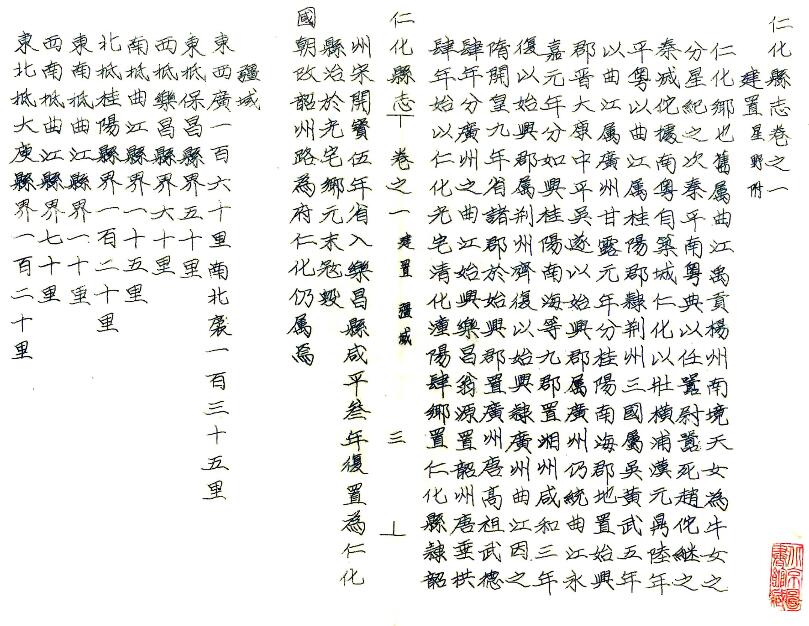 仁化縣志卷之一
建置 星野附
仁化鄉也舊屬曲江禹貢楊州南境天女為牛女之
分星紀之次秦平南粵典以任囂尉囂死趙佗繼之
秦城佗橫南粵自築城仁化以壯橫浦漢元鼎陸年
平粵以曲江屬桂陽郡隸荆州三國屬吳黃武五年
以曲江屬廣州甘露元年分桂陽南海郡地置始興
郡晉太康中平吳遂以始興郡屬廣州仍統曲江永
嘉元年分始興桂陽南海等九郡置湘州咸和三年
復以始興郡屬荆州齊復以始興隸廣州曲江因之
隋開皇九年省諸郡於始興郡置廣州唐高祖武德
肆年分廣州之曲江始興樂昌翁源置韶州唐垂拱
肆年始以仁化光宅清化潼陽肆鄉置仁化縣隸韶
仁化縣志 卷之一 建置 疆域 三
州宋開寶伍年省入樂昌縣咸平叁年復置為仁化
縣治於光宅鄉元末冠毀
國朝改韶州路為府仁化仍屬焉
疆域
東西廣一百六十里南北袤一百三十五里
東抵保昌縣界五十里
西抵樂昌縣界六十里
南抵曲江縣界一十五里
北抵桂陽縣界一百二十里
東南抵曲江縣界一十里
西南抵曲江縣界七十里
東北抵大庾縣界一百二十里